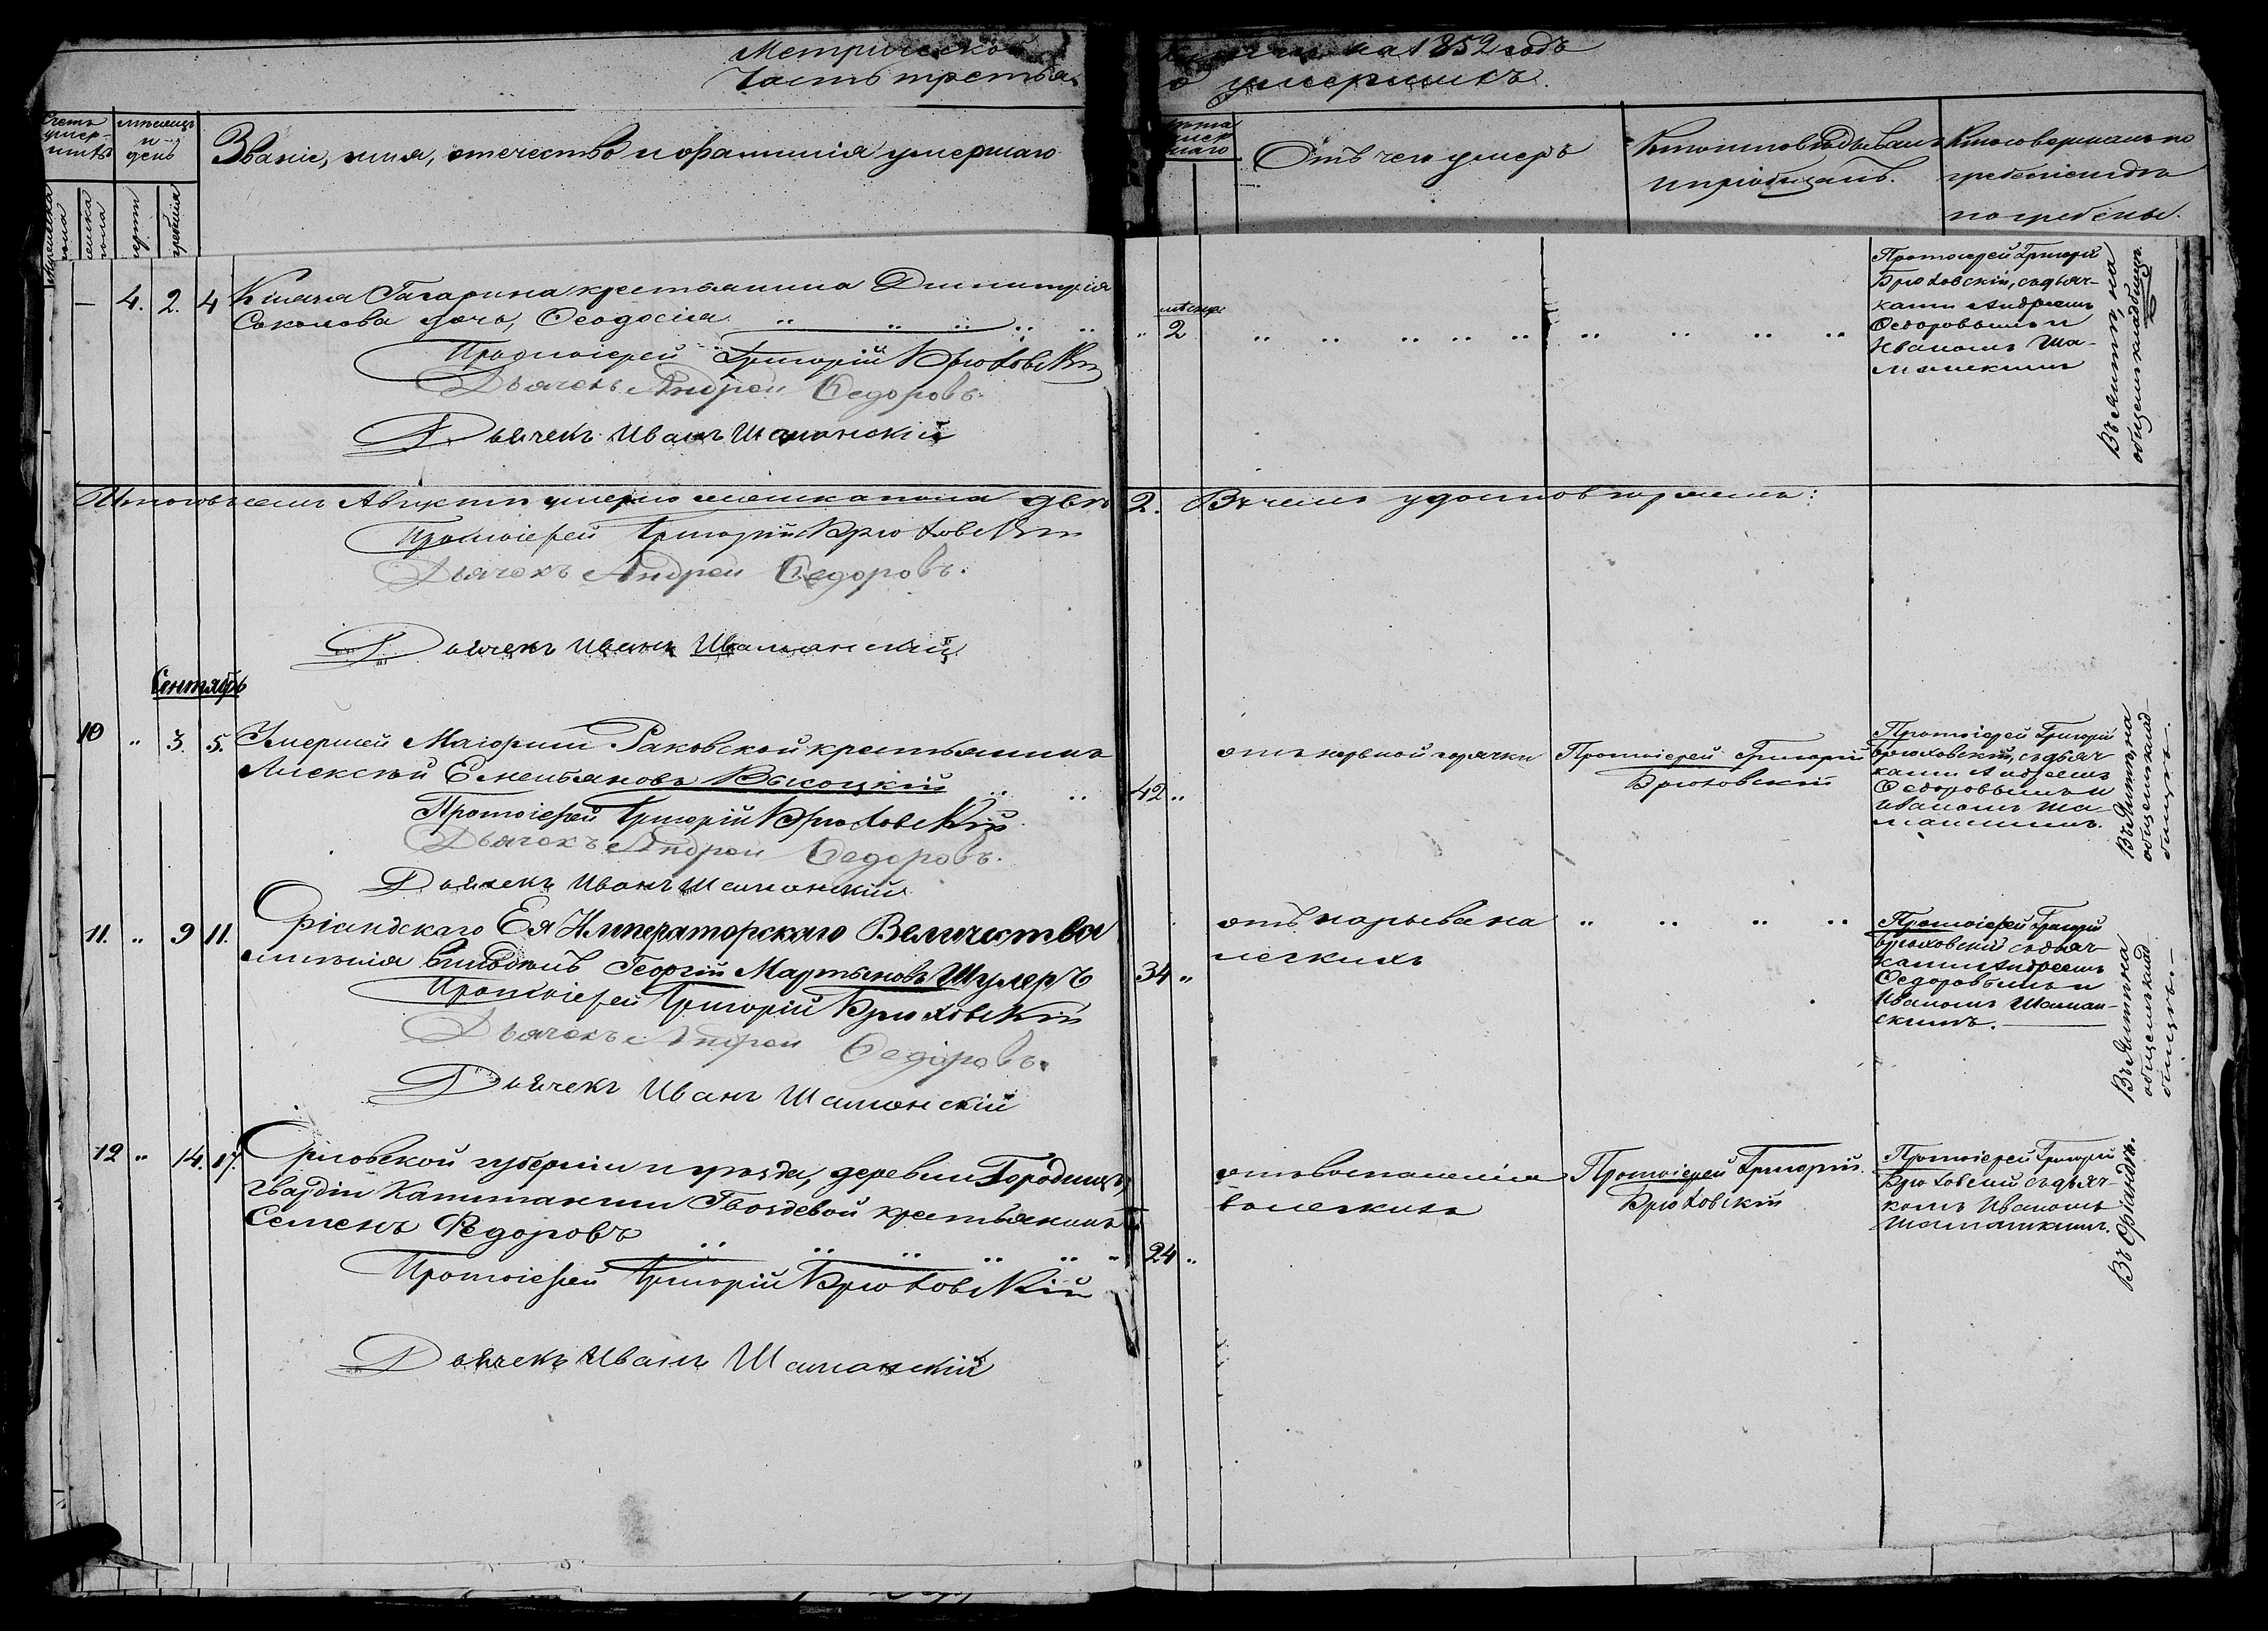 Метрической книги на 1852 годъ
Часть третья о умершихъ.
Счетъ умершихъ
мѣсяцъ и день
Званіе, имя, отечество и фамилія умершаго
Лѣта умершаго
Отъ чего умеръ
Кто исповѣдывалъ и пріобщалъ.
Кто совершалъ погребеніе и гдѣ погребены.
мужеска пола
женска пола
смерти
погребенія
— 4. 2. 4
Князя Гагарина крестьянина Димитрія
Соколова дочь, Ѳеодосія
Протоіерей Григорій Брюховскій
Дьячекъ Андрей Ѳедоровъ.
Дьячекъ Иванъ Шаманскій
мѣсяца
2
Протоіерей Григорій
Брюховскій, съ дьяч-
ками Андреемъ
Ѳедоровымъ и
Иваномъ Ша-
манскимъ
Въ Ялтѣ, на
общемъ кладбищѣ.
Итого въ семъ Августѣ умерло женска пола двѣ 2. Въ чемъ удостовѣряемъ:
Протоіерей Григорій Брюховскій
Дьячекъ Андрей Ѳедоровъ.
Дьячекъ Иванъ Шаманскій
Сентябрь
10 „ 3. 5.
Умершей Маіорши Раковской крестьянинъ
Алексѣй Емельяновъ Высоцкій
Протоіерей Григорій Брюховскій
Дьячекъ Андрей Ѳедоровъ.
Дьячекъ Иванъ Шаманскій
42 „
отъ нервной горячки
Протоіерей Григорій
Брюховскій
Протоіерей Григорій
Брюховскій, съ дьяч-
ками Андреемъ
Ѳедоровымъ и
Иваномъ Ша-
манскимъ.
Въ Ялтѣ, на
общемъ клад-
бищѣ.
11. „ 9 11.
Оріандскаго Ея Императорскаго Величества
имѣнія Георгій Мартыновъ Шулеръ
Протоіерей Григорій Брюховскій
Дьячекъ Андрей Ѳедоровъ.
Дьячекъ Иванъ Шаманскій
34 „
отъ нарыва на
легкихъ
Протоіерей Григорій
Брюховскій съ дьяч-
ками Андреемъ
Ѳедоровымъ и
Иваномъ Шаман-
скимъ.
Въ Ялтѣ на
общемъ клад-
бищѣ.
12 „ 14. 17.
Орловской губерніи и уѣзда, деревни Городищъ,
Гвардіи Капитанши Гвоздевой крестьянинъ
Семенъ Ѳедоровъ
Протоіерей Григорій Брюховскій
Дьячекъ Иванъ Шаманскій
24 „
отъ воспаленія
въ легкихъ
Протоіерей Григорій
Брюховскій
Протоіерей Григорій
Брюховскій съ дьяч-
комъ Иваномъ
Шаманскимъ.
Въ Оріандѣ.